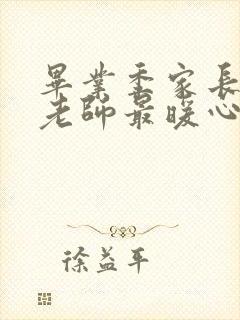 畢業季家長
老師最暖心
徐益平